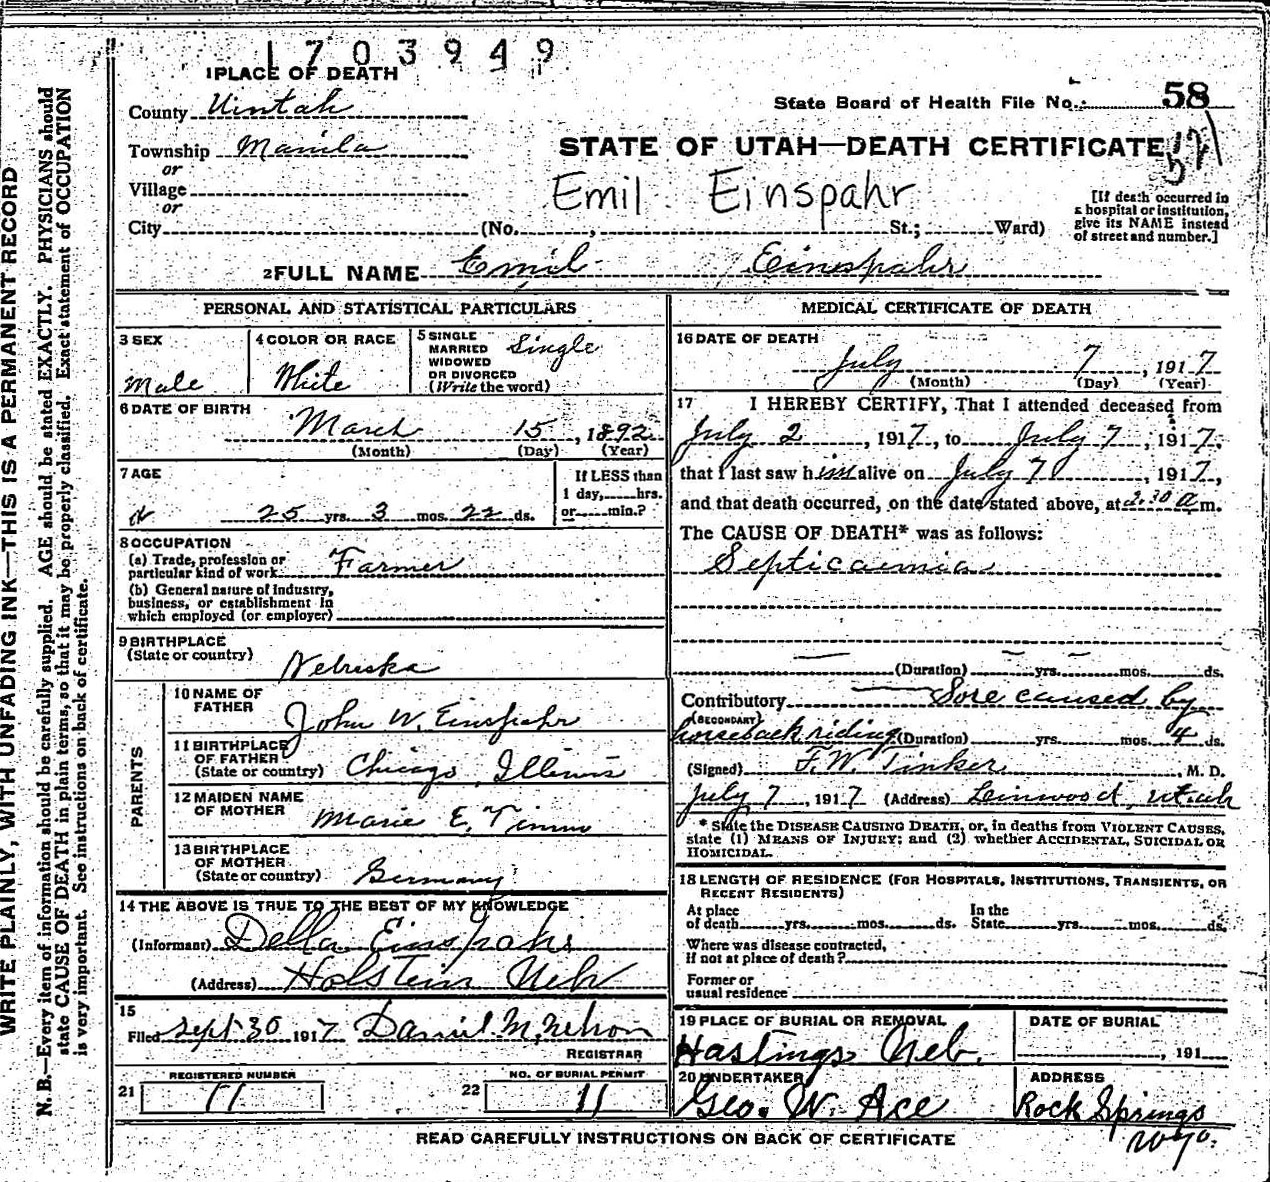 1703949
1 PLACE OF DEATH
County Uintah
State Board of Health File No. 58
Township Manila
STATE OF UTAH—DEATH CERTIFICATE
521
or
Village
Emil Einspahr
or
City (No. , St.; Ward)
[If death occurred in
a hospital or institution,
give its NAME instead
of street and number.]
2 FULL NAME Emil Einspahr
PERSONAL AND STATISTICAL PARTICULARS
3 SEX
Male
4 COLOR OR RACE
White
5 SINGLE
MARRIED
WIDOWED
OR DIVORCED
(Write the word)
Single
6 DATE OF BIRTH
March 15, 1892
(Month) (Day) (Year)
7 AGE
25 yrs. 3 mos. 22 ds.
If LESS than
1 day, hrs.
or min.?
8 OCCUPATION
(a) Trade, profession or
particular kind of work Farmer
(b) General nature of industry,
business, or establishment in
which employed (or employer)
9 BIRTHPLACE
(State or country)
Nebraska
PARENTS
10 NAME OF
FATHER
John W. Einspahr
11 BIRTHPLACE
OF FATHER
(State or country) Chicago, Illinois
12 MAIDEN NAME
OF MOTHER Marie E. Timm
13 BIRTHPLACE
OF MOTHER
(State or country) Germany
14 THE ABOVE IS TRUE TO THE BEST OF MY KNOWLEDGE
(Informant) Della Einspahr
(Address) Holstein Neb
15
Filed Sept 30 1917 Daniel M. Nelson
REGISTRAR
21 REGISTERED NUMBER
11
22 NO. OF BURIAL PERMIT
11
MEDICAL CERTIFICATE OF DEATH
16 DATE OF DEATH
July 7, 1917
(Month) (Day) (Year)
17 I HEREBY CERTIFY, That I attended deceased from
July 2, 1917, to July 7, 1917,
that I last saw him alive on July 7, 1917,
and that death occurred, on the date stated above, at 2.30 a m.
The CAUSE OF DEATH* was as follows:
Septicaemia
(Duration) yrs. mos. ds.
Contributory Sore caused by
(SECONDARY)
horseback riding (Duration) yrs. mos. 4 ds.
(Signed) F. W. Tinker, M. D.
July 7, 1917 (Address) Linwood, Utah
* State the DISEASE CAUSING DEATH, or, in deaths from VIOLENT CAUSES,
state (1) MEANS OF INJURY; and (2) whether ACCIDENTAL, SUICIDAL OR
HOMICIDAL.
18 LENGTH OF RESIDENCE (FOR HOSPITALS, INSTITUTIONS, TRANSIENTS, OR
RECENT RESIDENTS)
At place
of death yrs. mos. ds.
In the
State yrs. mos. ds.
Where was disease contracted,
if not at place of death?
Former or
usual residence
19 PLACE OF BURIAL OR REMOVAL
Hastings Neb.
DATE OF BURIAL
, 191
20 UNDERTAKER
Geo. W. Ace
ADDRESS
Rock Springs
Wyo.
READ CAREFULLY INSTRUCTIONS ON BACK OF CERTIFICATE
WRITE PLAINLY, WITH UNFADING INK—THIS IS A PERMANENT RECORD
N. B.—Every item of information should be carefully supplied. AGE should be stated EXACTLY. PHYSICIANS should
state CAUSE OF DEATH in plain terms, so that it may be properly classified. Exact statement of OCCUPATION
is very important. See instructions on back of certificate.